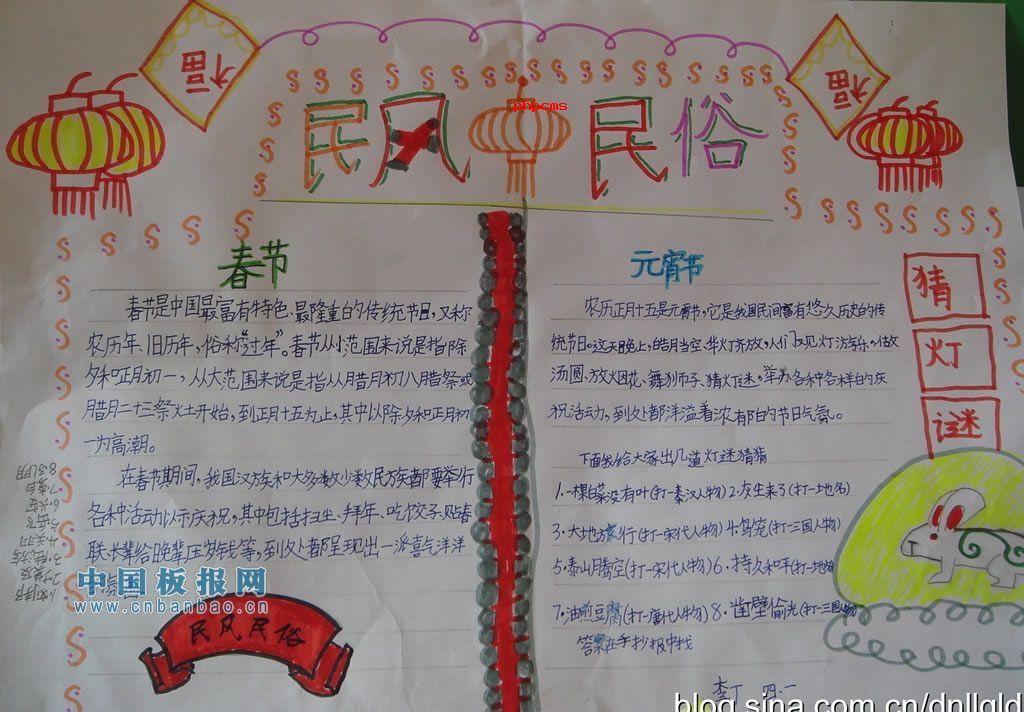 福
福
民风民俗
phpcms
春节
春节是中国最富有特色、最隆重的传统节日，又称
农历年、旧历年，俗称“过年”。春节从小范围来说是指除
夕和正月初一，从大范围来说是指从腊月初八腊祭或
腊月二十三祭灶开始，到正月十五为止，其中以除夕和正月初
一为高潮。
在春节期间，我国汉族和大多数少数民族都要举行
各种活动以示庆祝，其中包括扫尘、拜年、吃饺子、贴春
联、长辈给晚辈压岁钱等，到处都呈现出一派喜气洋洋
中国板报网
www.cnbanbao.cn
民风民俗
元宵节
农历正月十五是元宵节，它是我国民间富有悠久历史的传
统节日。这天晚上，皓月当空、华灯齐放，人们观灯游乐、做
汤圆、放烟花、舞狮子、猜灯谜，举办各种各样的庆
祝活动，到处都洋溢着浓郁的节日气氛。
下面我给大家出几道灯迷猜猜
1.一棵白菜没有叶(打一秦汉人物) 2.灰尘来了(打一地名)
3.大地旅行(打一宋代人物) 4.鸟宪(打一三国人物)
5.泰山腾空(打一宋代人物) 6.持久和平(打一地名)
7.油煎豆腐(打一唐代人物) 8.凿壁偷光(打一三国人物)
答案在手抄报中找
李丁 四、一
猜
灯
谜
blog.sina.com.cn/dnllgld